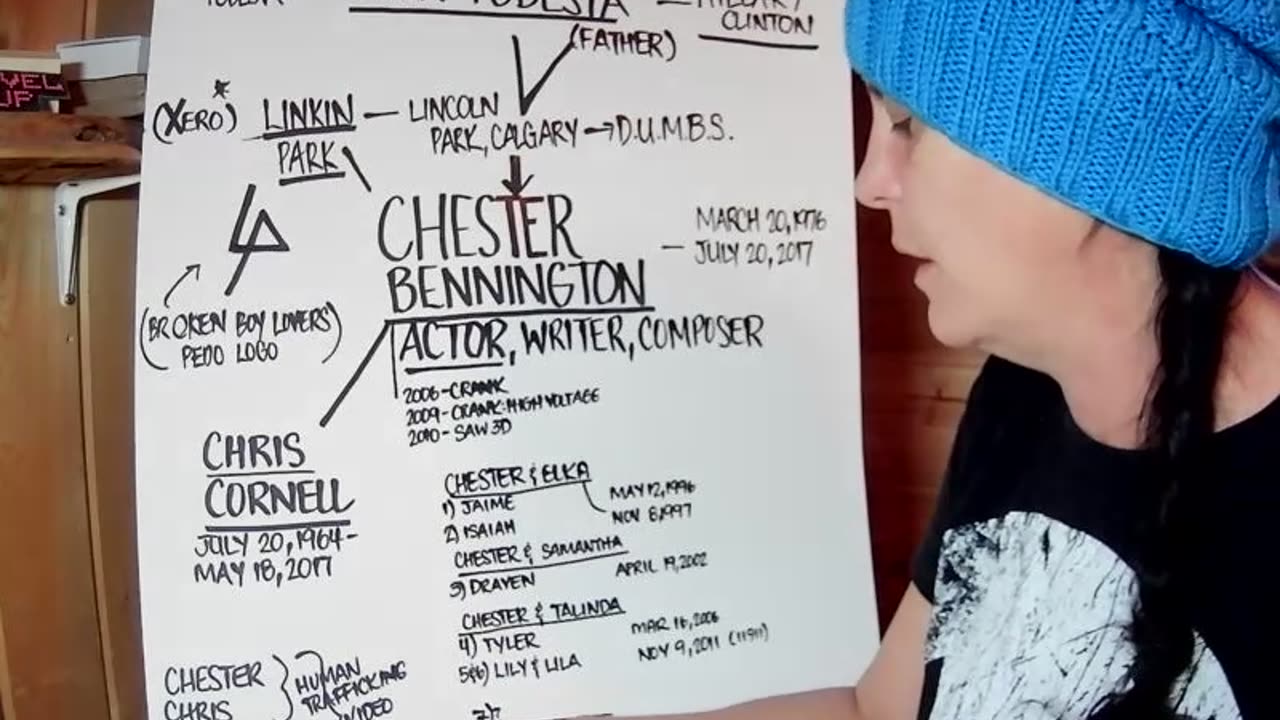 PODESTA
HILLARY
CLINTON
(FATHER)
VEL
UP
(XERO)*
LINKIN — LINCOLN
PARK
PARK, CALGARY → D.U.M.B.S.
CHESTER
BENNINGTON
— MARCH 20, 1976
JULY 20, 2017
(BROKEN BOY LOVERS)
PEDO LOGO
ACTOR, WRITER, COMPOSER
2006 - CRANK
2009 - CRANK: HIGH VOLTAGE
2010 - SAW 3D
CHRIS
CORNELL
JULY 20, 1964 -
MAY 18, 2017
CHESTER & ELKA
1) JAIME MAY 12, 1996
2) ISAIAH NOV 8, 1997
CHESTER & SAMANTHA
3) DRAVEN APRIL 19, 2002
CHESTER & TALINDA
4) TYLER MAR 16, 2006
5&6) LILY & LILA NOV 9, 2011 (11911)
CHESTER
CHRIS
HUMAN
TRAFFICKING
VIDEO